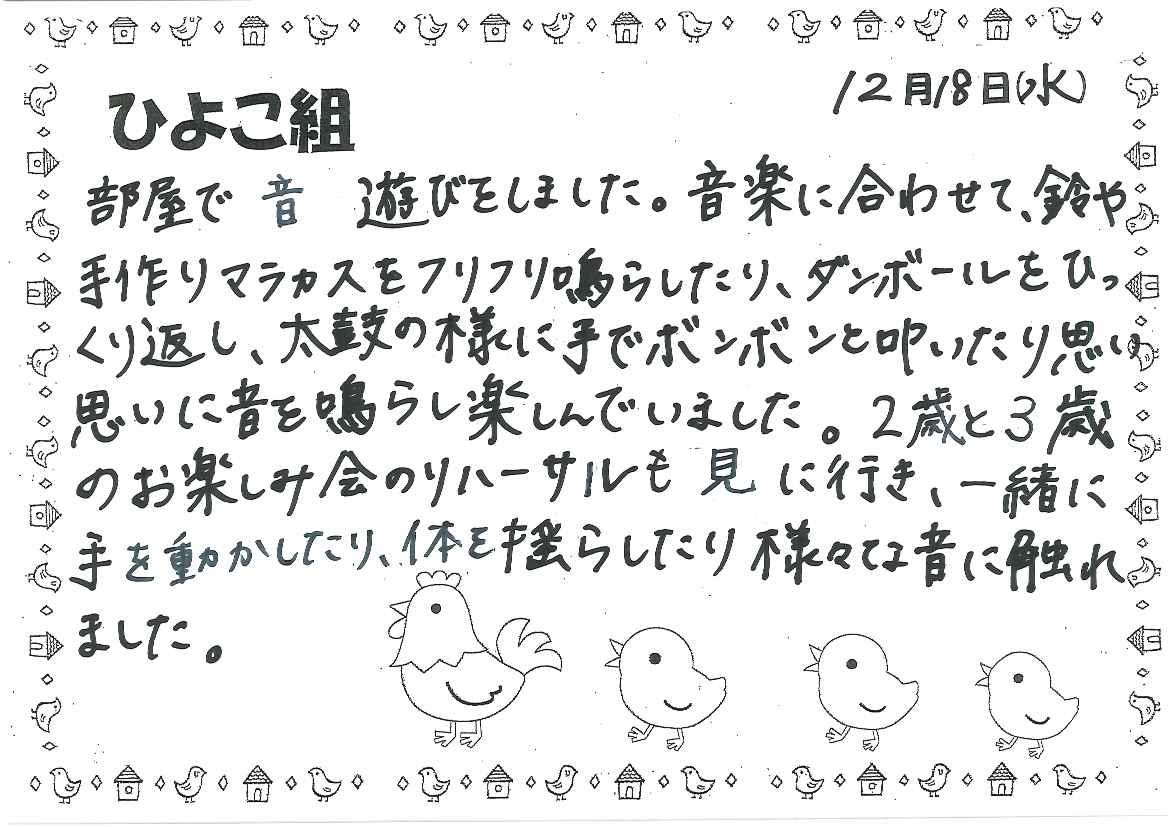 12月18日(水)
ひよこ組
部屋で音遊びをしました。音楽に合わせて、鈴や
手作りマラカスをフリフリ鳴らしたり、ダンボールをひっ
くり返し、太鼓の様に手でボンボンと叩いたり思い
思いに音を鳴らし楽しんでいました。2歳と3歳
のお楽しみ会のリハーサルも見に行き、一緒に
手を動かしたり、体を揺らしたり様々な音に触れ
ました。